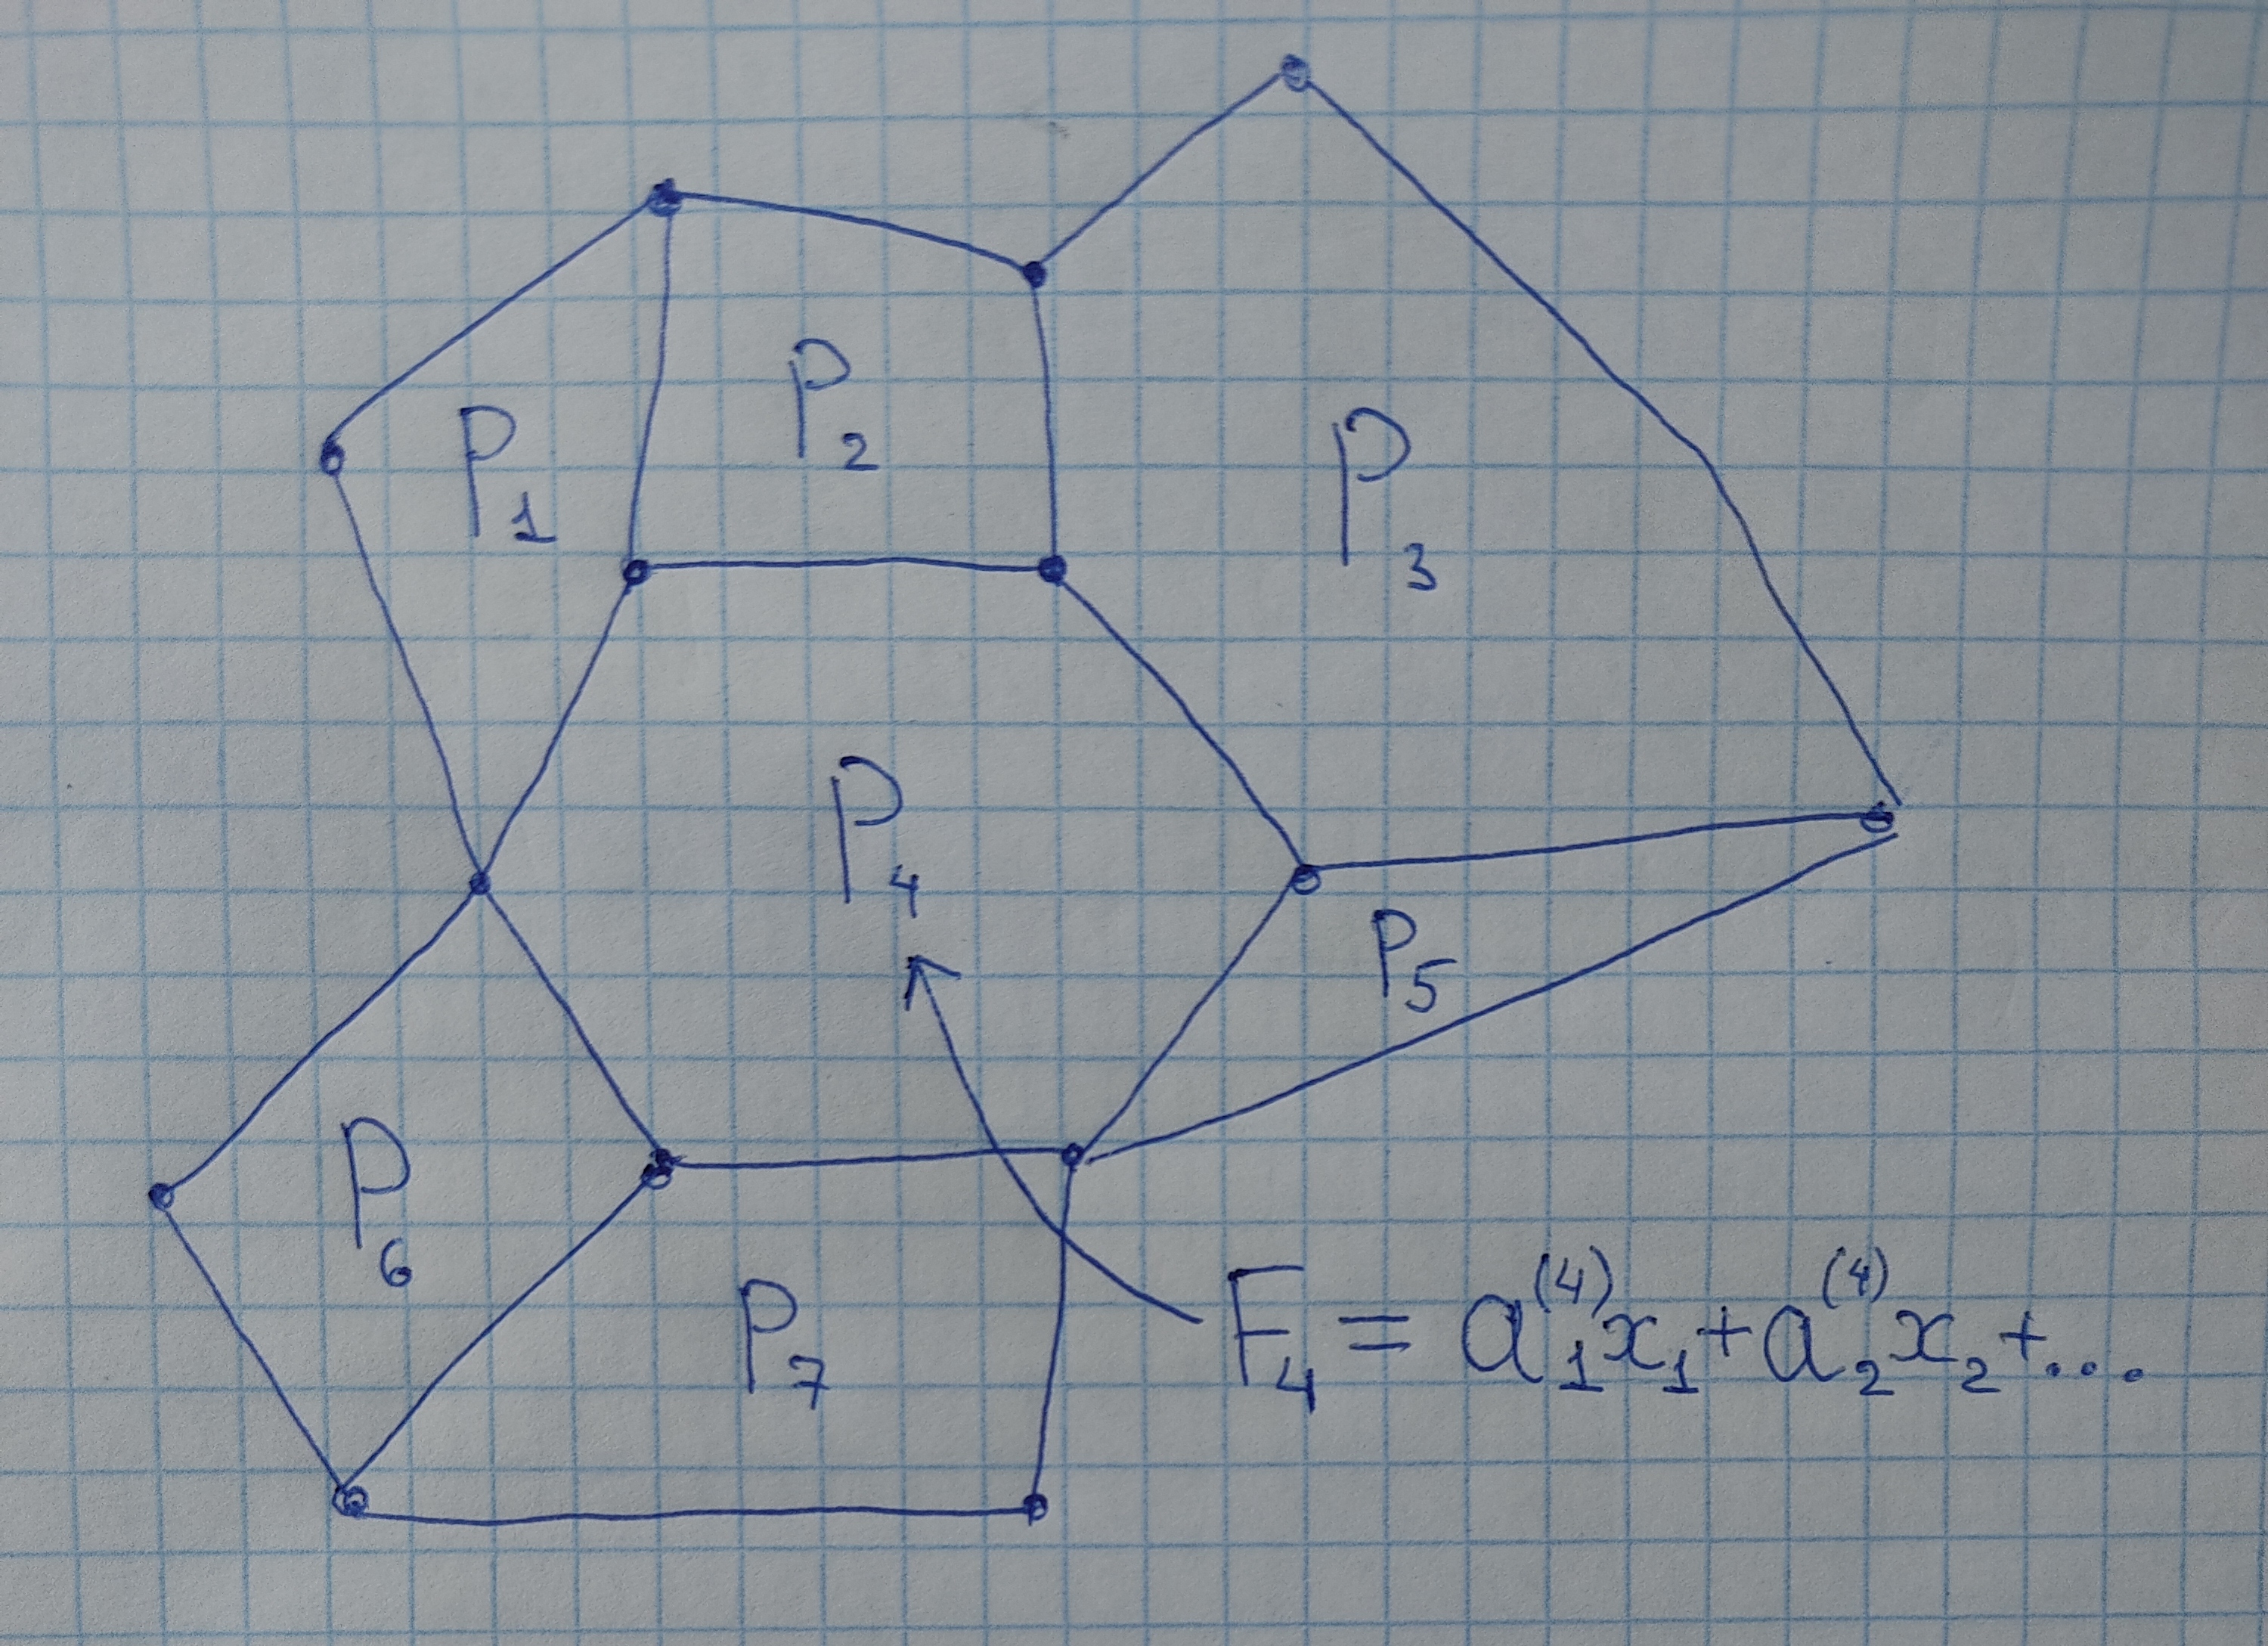 P₁
P₂
P₃
P₄
P₅
P₆
P₇
F₄ = a₁⁽⁴⁾x₁ + a₂⁽⁴⁾x₂ + ...